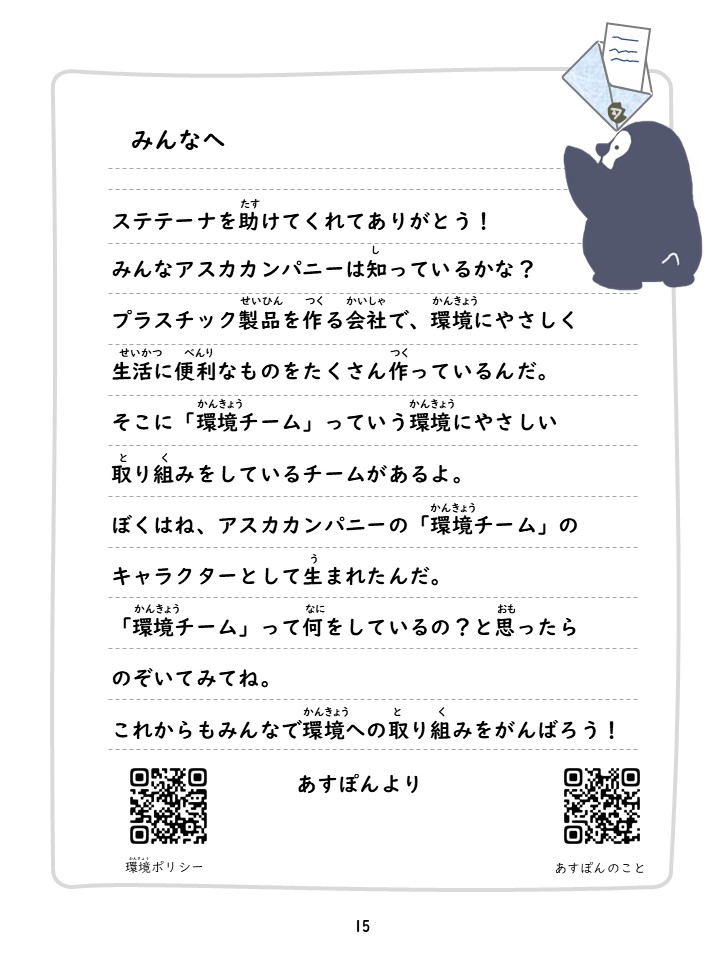 みんなへ
ステテーナを助けてくれてありがとう！
みんなアスカカンパニーは知っているかな？
プラスチック製品を作る会社で、環境にやさしく
生活に便利なものをたくさん作っているんだ。
そこに「環境チーム」っていう環境にやさしい
取り組みをしているチームがあるよ。
ぼくはね、アスカカンパニーの「環境チーム」の
キャラクターとして生まれたんだ。
「環境チーム」って何をしているの？と思ったら
のぞいてみてね。
これからもみんなで環境への取り組みをがんばろう！
あすぽんより
環境ポリシー
あすぽんのこと
15